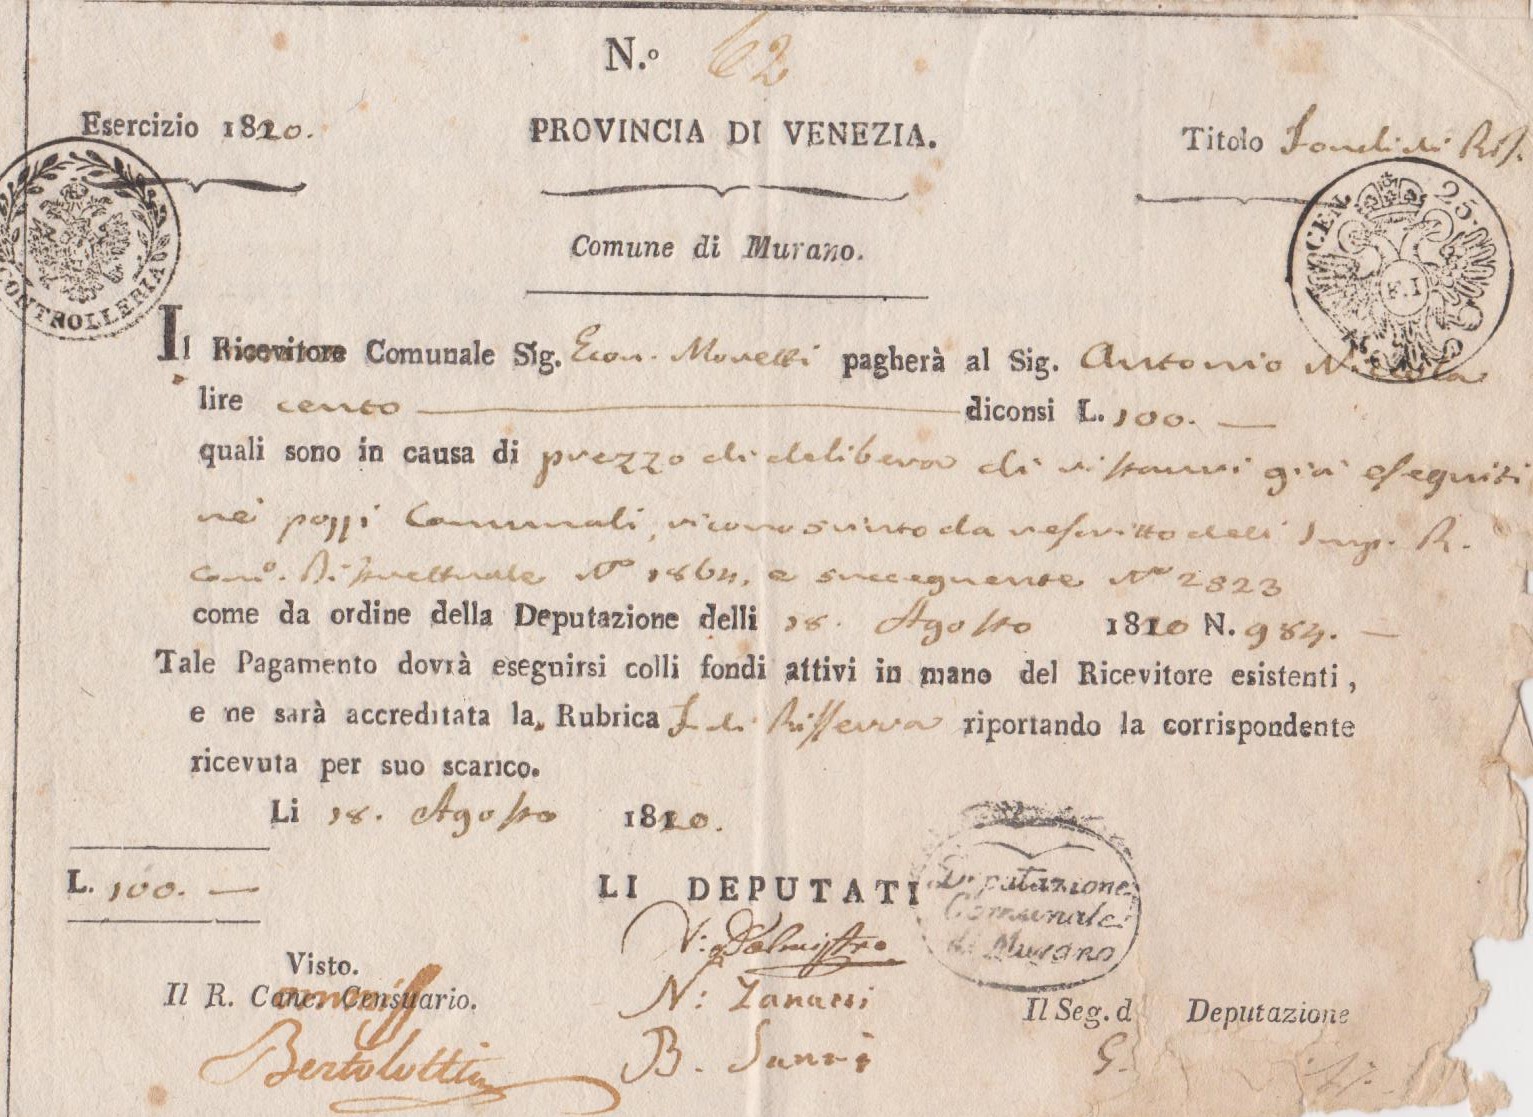 N.º 62
Esercizio 1820. PROVINCIA DI VENEZIA. Titolo Fondi di Ris.
CONTROLLERIA
CEN. 25.
F.I
Comune di Murano.
Il Ricevitore Comunale Sig. Econ. Moretti pagherà al Sig. Antonio
lire cento diconsi L. 100.
quali sono in causa di prezzo di delibera di ristauri già eseguiti
nei pozzi Comunali, riconosciuto da rescritto dell' Imp. R.
Distrettuale Nº 1864, e susseguente Nº 2823
come da ordine della Deputazione delli 18. Agosto 1820 N. 984.
Tale Pagamento dovrà eseguirsi colli fondi attivi in mano del Ricevitore esistenti,
e ne sarà accreditata la Rubrica F. di Risserva riportando la corrispondente
ricevuta per suo scarico.
Li 18. Agosto 1820.
L. 100.
LI DEPUTATI
Deputazione
Comunale
di Murano
V: Dalmistro
Visto.
Il R. Canc. Censuario.
N: Zanassi
Il Seg. d Deputazione
Bertolotti
B.
G.